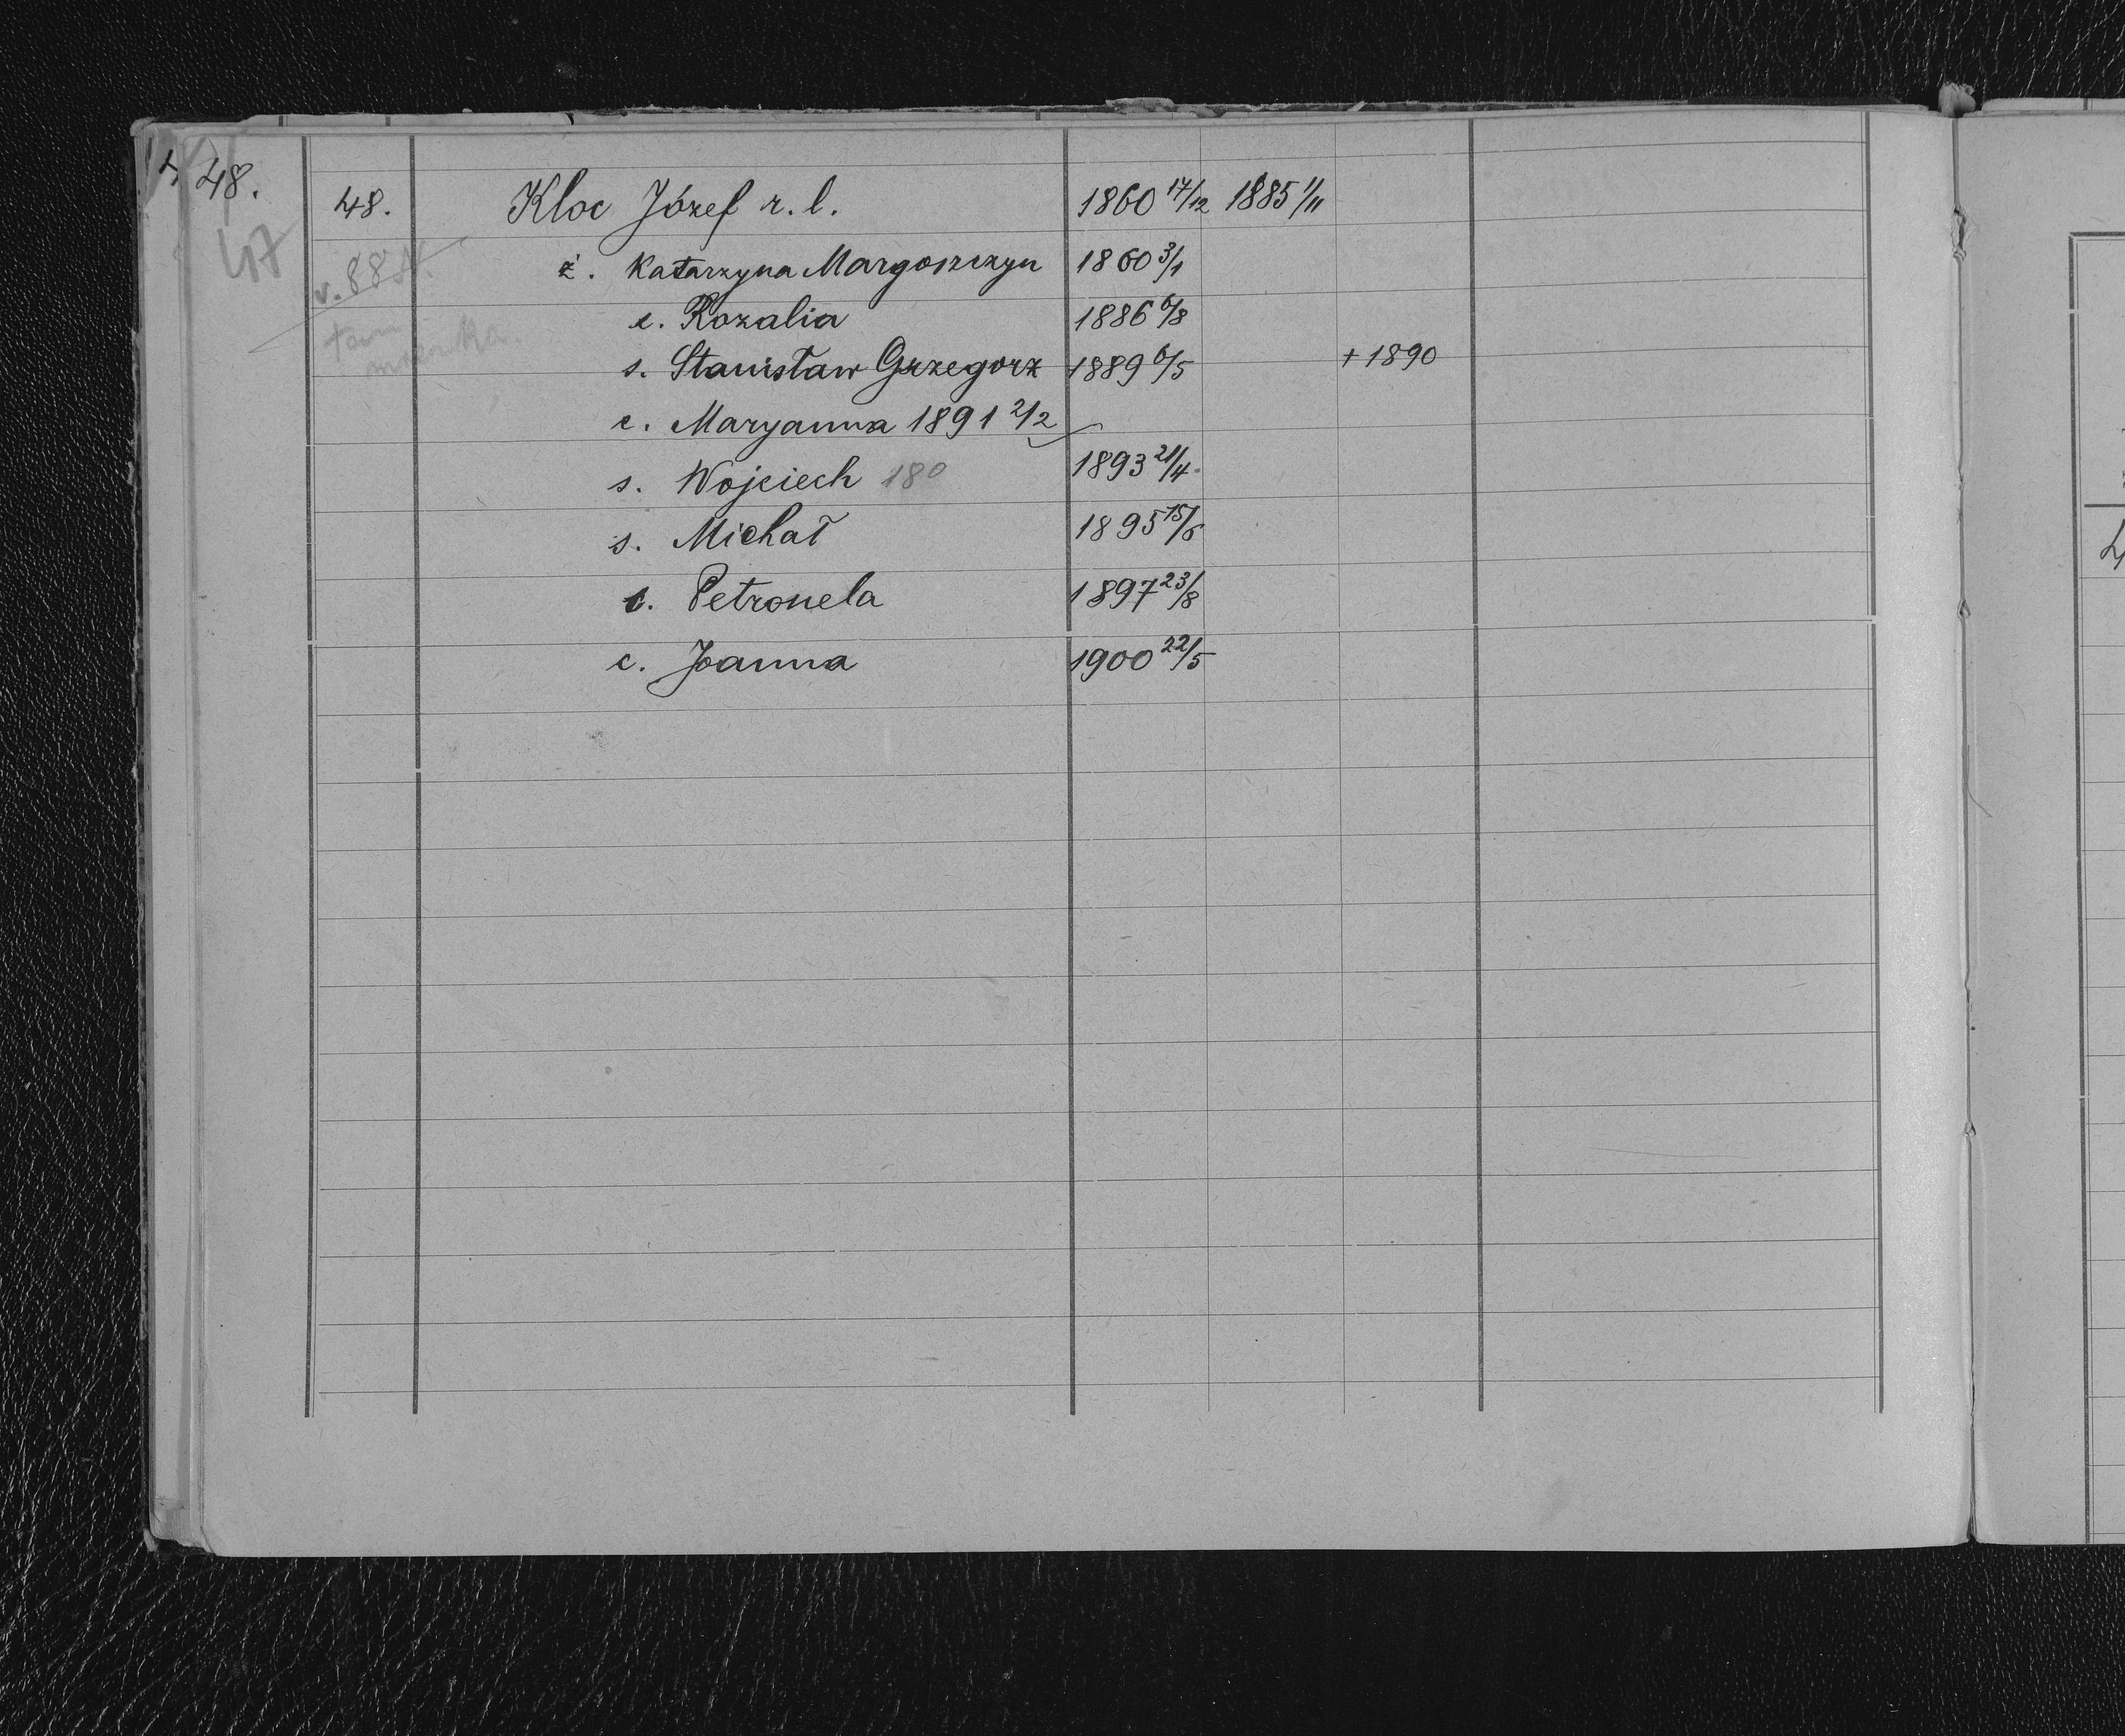 48.
47
48. Kloc Józef r. l. 1860 17/12 1885 11/11
v. 88 N. ż. Katarzyna Margoszczyn 1860 3/1
tam c. Rozalia 1886 6/8
mieszka. s. Stanisław Grzegorz 1889 6/5 + 1890
c. Maryanna 1891 2/2
s. Wojciech 180 1893 21/4.
s. Michał 1895 15/
c. Petronela 1897 23/8
c. Joanna 1900 22/5